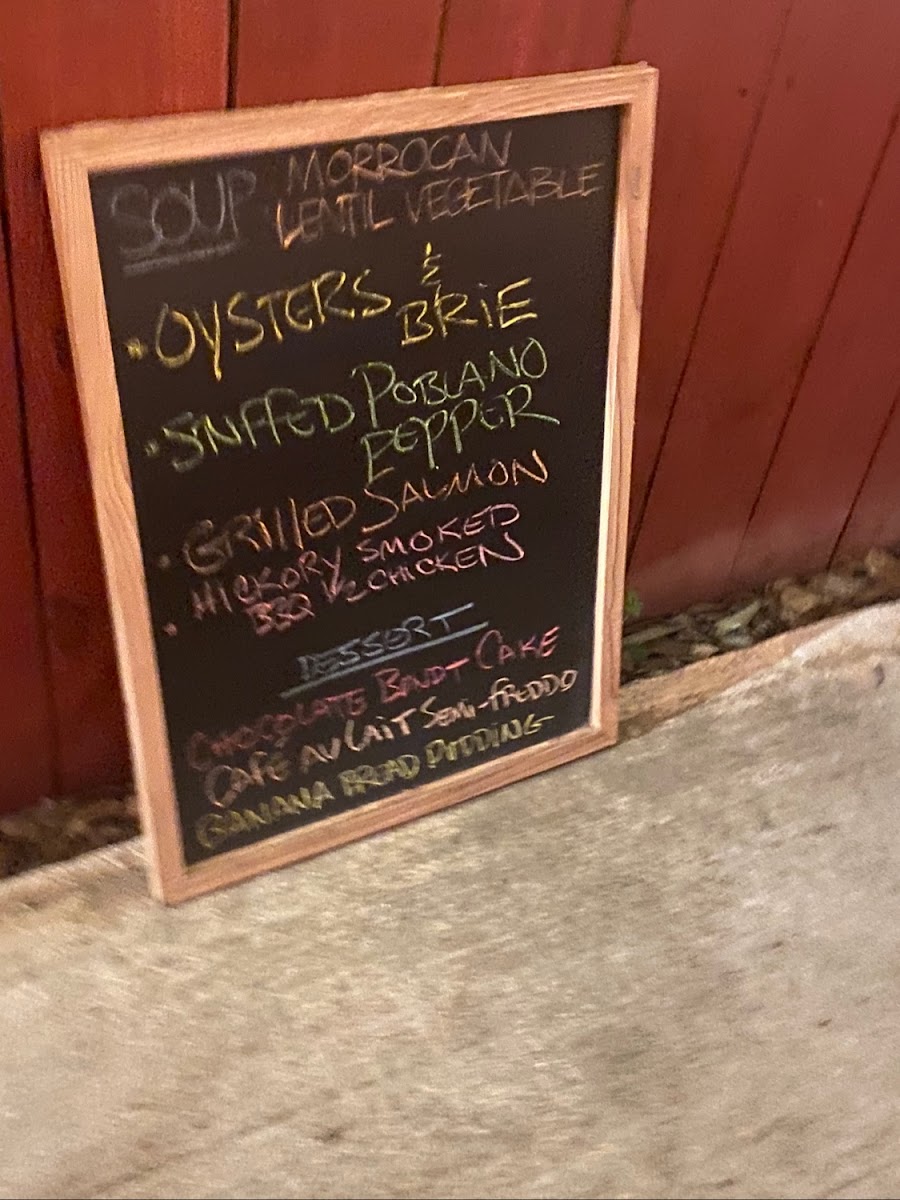 SOUP MORROCAN
LENTIL VEGETABLE
• OYSTERS &
BRIE
• STUFFED POBLANO
PEPPER
• GRILLED SALMON
• HICKORY SMOKED
BBQ 1/2 CHICKEN
DESSERT
CHOCOLATE BUNDT CAKE
CAFÉ AU LAIT SEMI-FREDDO
BANANA BREAD PUDDING